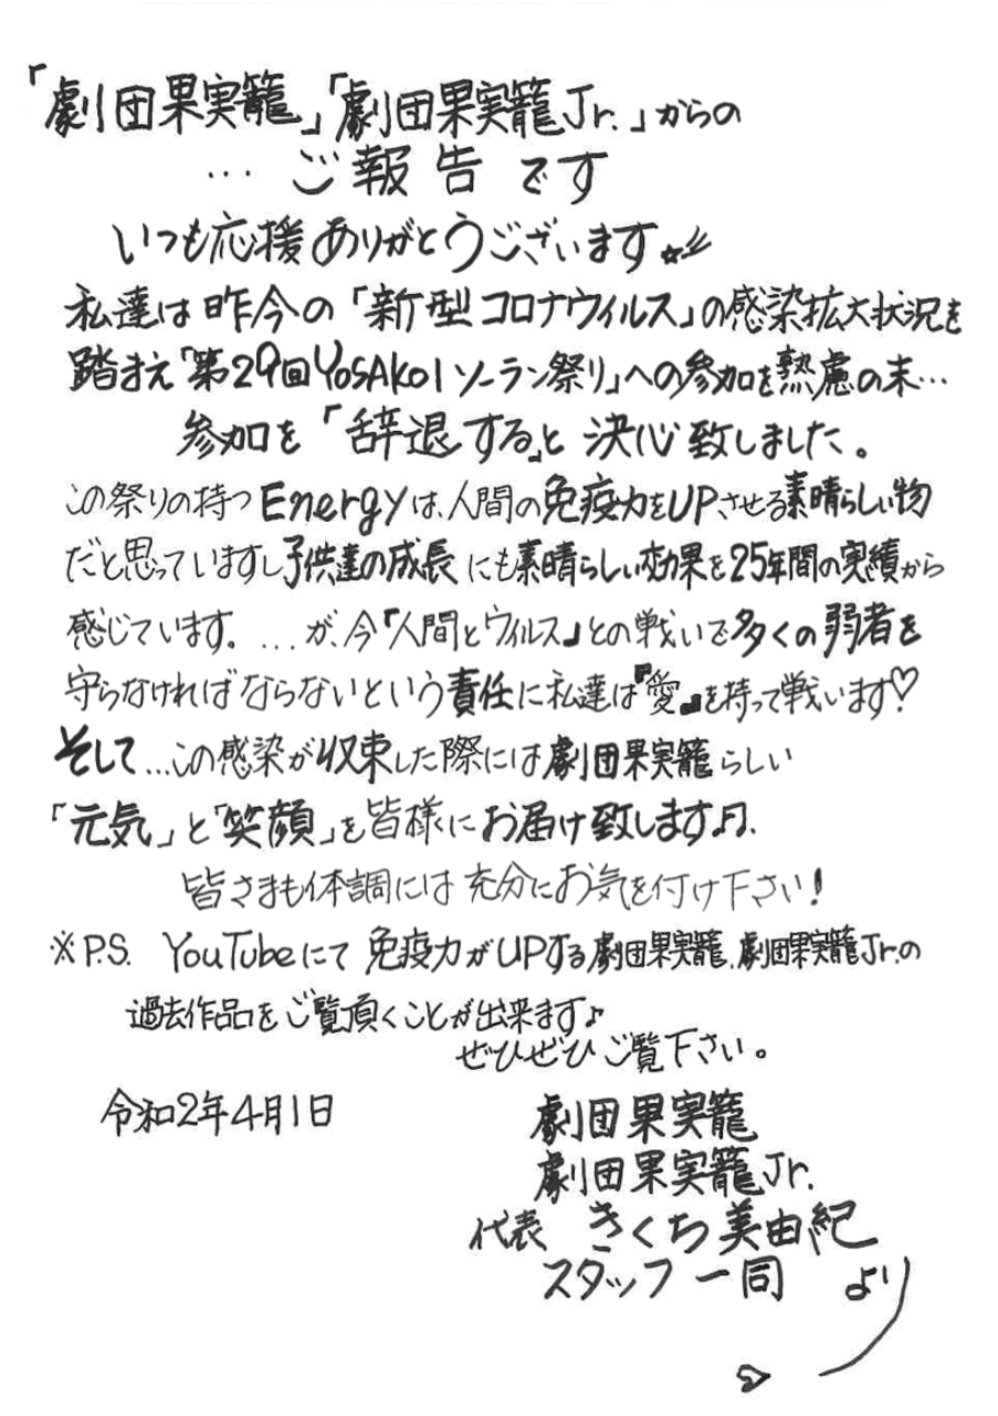 「劇団果実籠」「劇団果実籠Jr.」からの
… ご報告です
いつも応援ありがとうございます☆
私達は昨今の「新型コロナウィルス」の感染拡大状況を
踏まえ「第29回YOSAKOIソーラン祭り」への参加を熟慮の末…
参加を「辞退する」と決心致しました。
この祭りの持つEnergyは、人間の免疫力をUPさせる素晴らしい物
だと思っていますし子供達の成長にも素晴らしい効果を25年間の実績から
感じています。…が、今「人間とウィルス」との戦いで多くの弱者を
守らなければならないという責任に私達は『愛』を持って戦います♡
そして…この感染が収束した際には劇団果実籠らしい
「元気」と「笑顔」を皆様にお届け致します♫.
皆さまも体調には充分にお気を付け下さい!
※P.S. YouTubeにて免疫力がUPする劇団果実籠、劇団果実籠Jr.の
過去作品をご覧頂くことが出来ます♪
ぜひぜひご覧下さい。
令和2年4月1日
劇団果実籠
劇団果実籠Jr.
代表 きくち美由紀
スタッフ一同 より